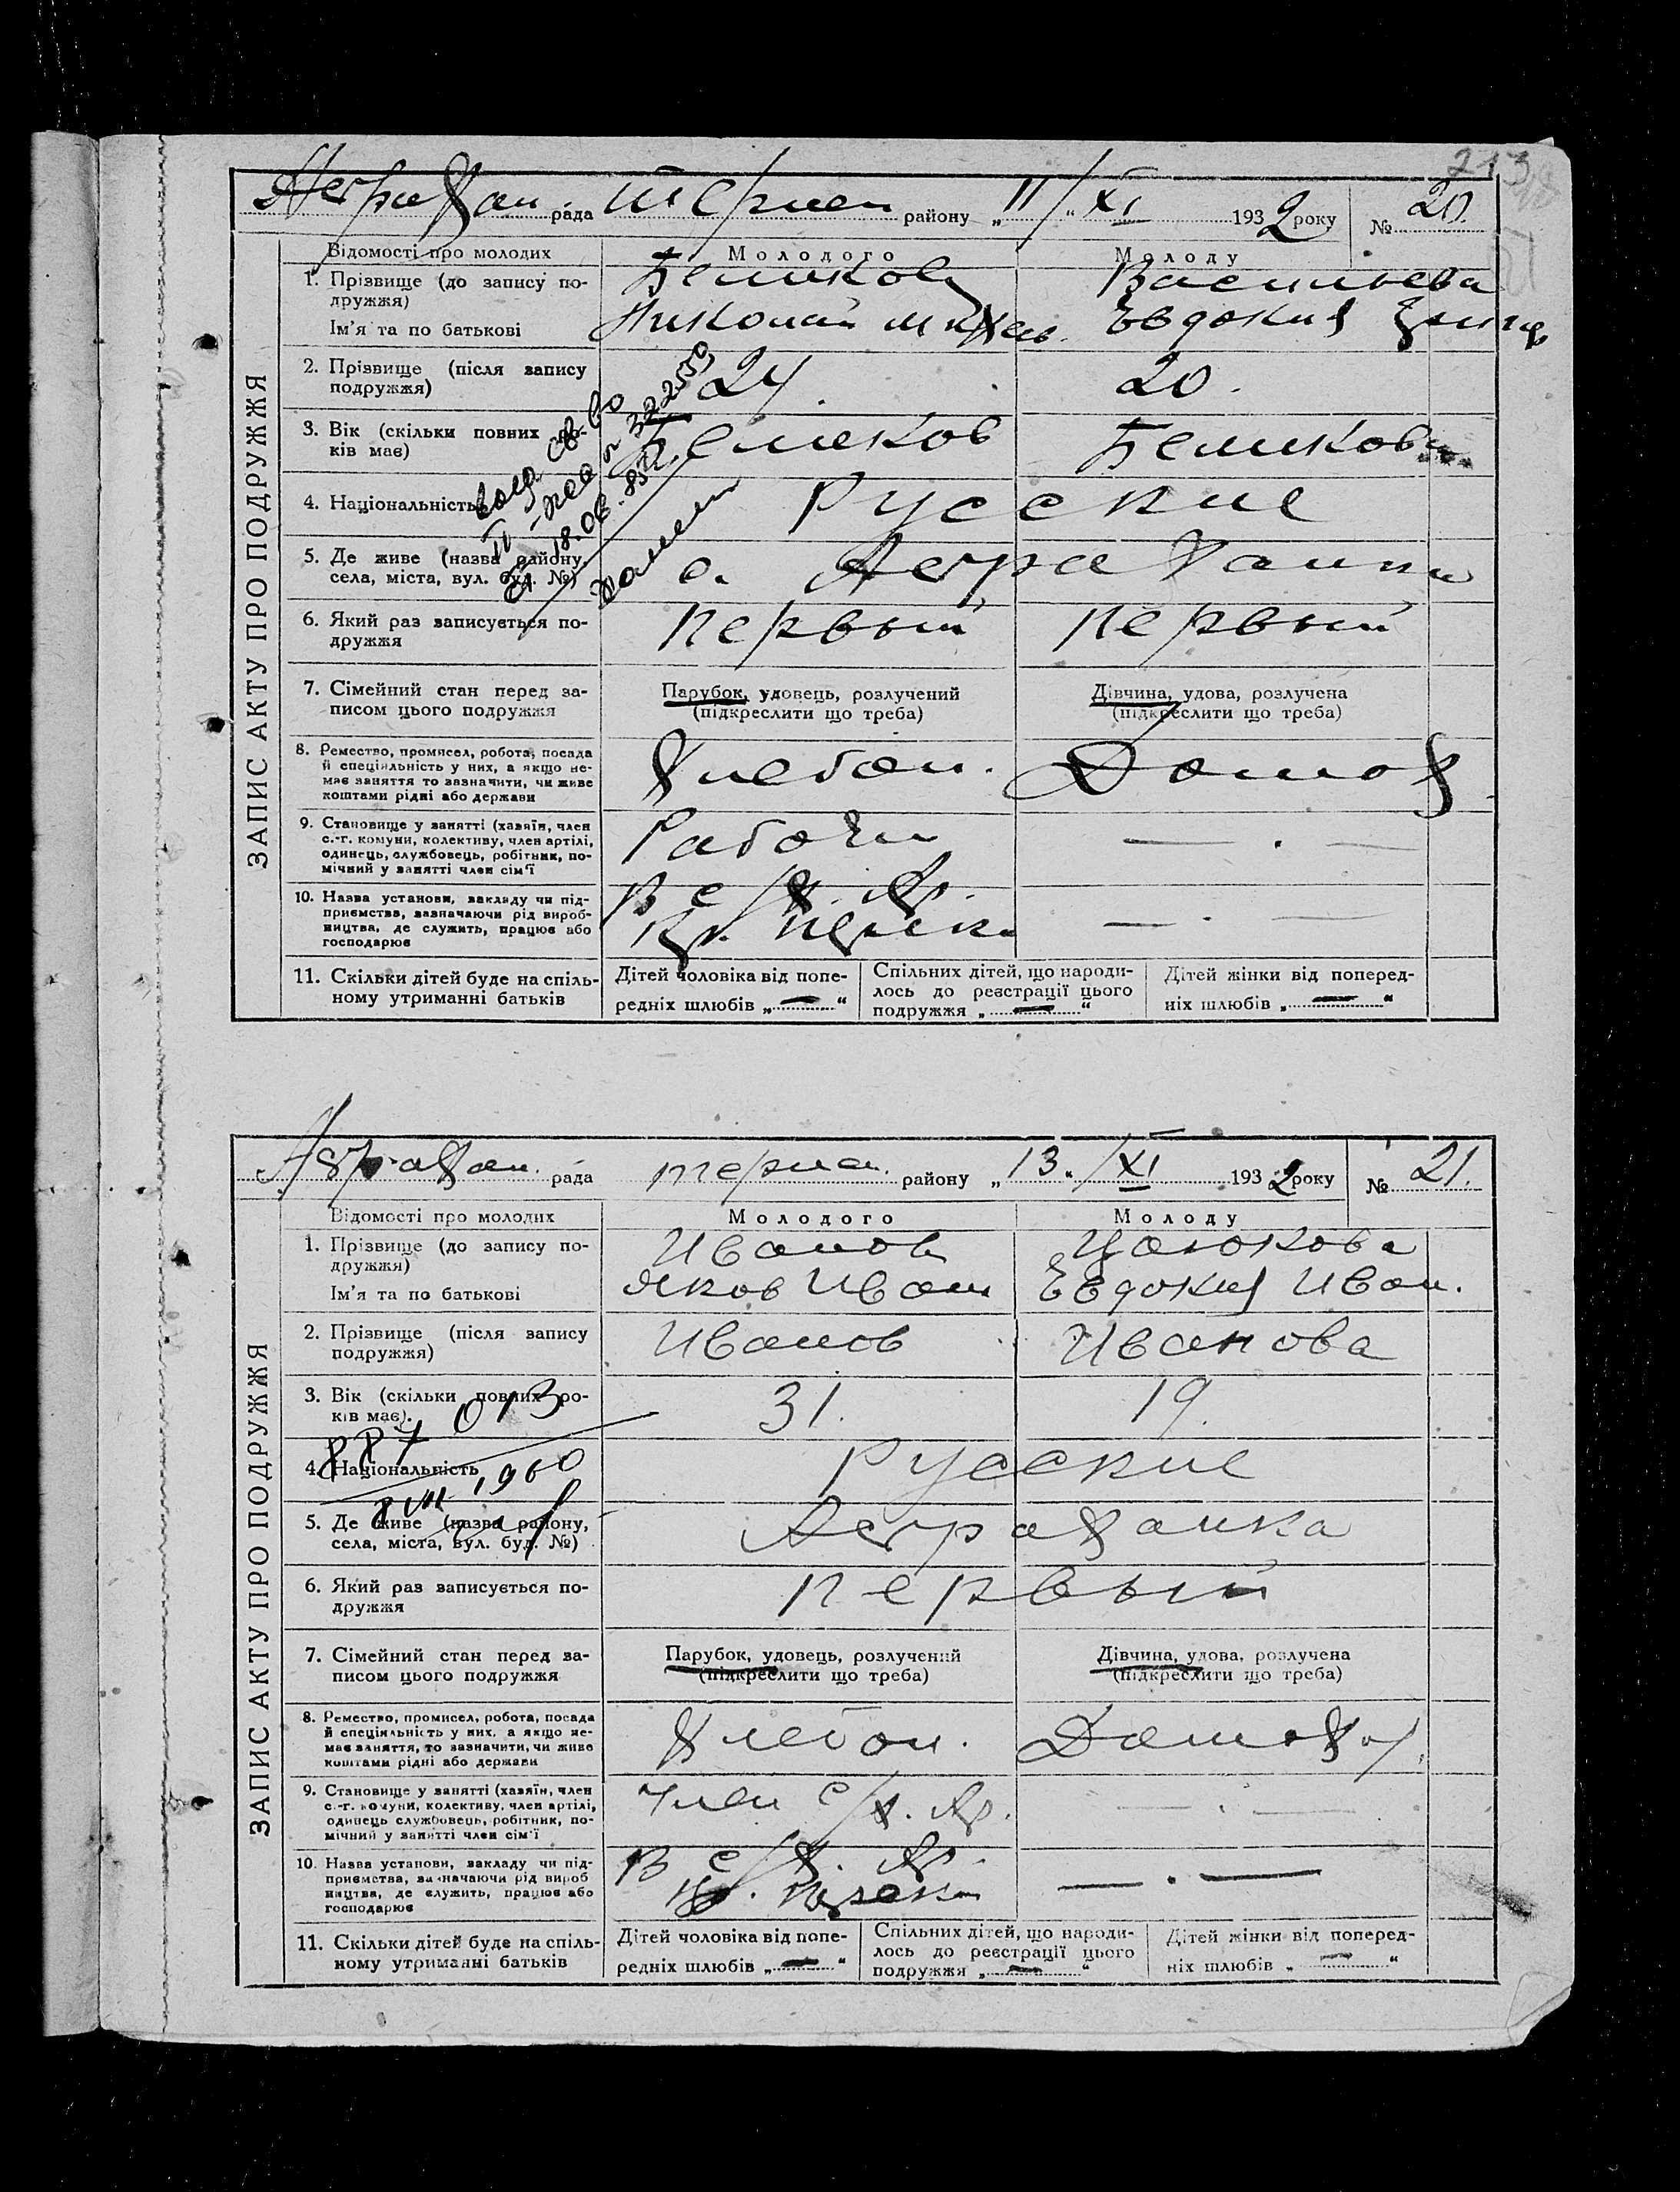 213
Астрахан. рада Терпен района „11/“ XI 1932 року № 20.
Відомості про молодих Молодого Молоду
1. Прізвище (до запису по-
дружжя)
Беликов Васильева
Ім'я та по батькові
Николай Михаев. Евдокия
2. Прізвище (після запису
подружжя)
24. 20.
3. Вік (скільки повних ро-
ків має)
Беликов Беликова
4. Національність
Русские
5. Де живе (назва району,
села, міста, вул. буд. №)
с. Астраханки
6. Який раз записується по-
дружжя
Первый Первый
7. Сімейний стан перед за-
писом цього подружжя
Парубок, удовець, розлучений
(підкреслити що треба)
Дівчина, удова, розлучена
(підкреслити що треба)
8. Ремество, промисел, робота, посада
й спеціяльність у них, а якщо не-
має заняття то зазначити, чи живе
коштами рідні або держави
Хлебоп. Домох
9. Становище у занятті (хазяїн, член
с.-г. комуни, колективу, член артілі,
одинець, службовець, робітник, по-
мічний у занятті член сім'ї
Рабочи — . —
10. Назва установи, закладу чи під-
приємства, зазначаючи рід вироб-
ництва, де служить, працює або
господарює
В с/х. Ар.
— . —
11. Скільки дітей буде на спіль-
ному утриманні батьків
Дітей чоловіка від попе-
редніх шлюбів „—“
Спільних дітей, що народи-
лось до реєстрації цього
подружжя „—“
Дітей жінки від поперед-
ніх шлюбів „—“
ЗАПИС АКТУ ПРО ПОДРУЖЖЯ
Астрахан. рада Терпен. району „13“ /XI 1932 року № 21.
Відомості про молодих Молодого Молоду
1. Прізвище (до запису по-
дружжя)
Иванов
Ім'я та по батькові
Яков Иван Евдокия Иван.
2. Прізвище (після запису
подружжя)
Иванов Иванова
3. Вік (скільки повних ро-
ків має).
31. 19.
013
4. Національність
Русские
1960
5. Де живе (назва району,
села, міста, вул. буд. №)
Астраханка
6. Який раз записується по-
дружжя
Первый
7. Сімейний стан перед за-
писом цього подружжя
Парубок, удовець, розлучений
(підкреслити що треба)
Дівчина, удова, розлучена
(підкреслити що треба)
8. Ремество, промисел, робота, посада
й спеціяльність у них, а якщо не-
має заняття, то зазначити, чи живе
коштами рідні або держави
Хлебоп. Домохоз.
9. Становище у занятті (хазяїн, член
с.-г. комуни, колективу, член артілі,
одинець службовець, робітник, по-
мічний у занятті член сім'ї
Член с/х. Ар. — . —
10. Назва установи, закладу чи під-
приємства, зазначаючи рід вироб
ництва, де служить, працює або
господарює
В с/х. Ар.
— . —
11. Скільки дітей буде на спіль-
ному утриманні батьків
Дітей чоловіка від попе-
редніх шлюбів „—“
Спільних дітей, що народи-
лось до реєстрації цього
подружжя „—“
Дітей жінки від поперед-
ніх шлюбів „—“
ЗАПИС АКТУ ПРО ПОДРУЖЖЯ